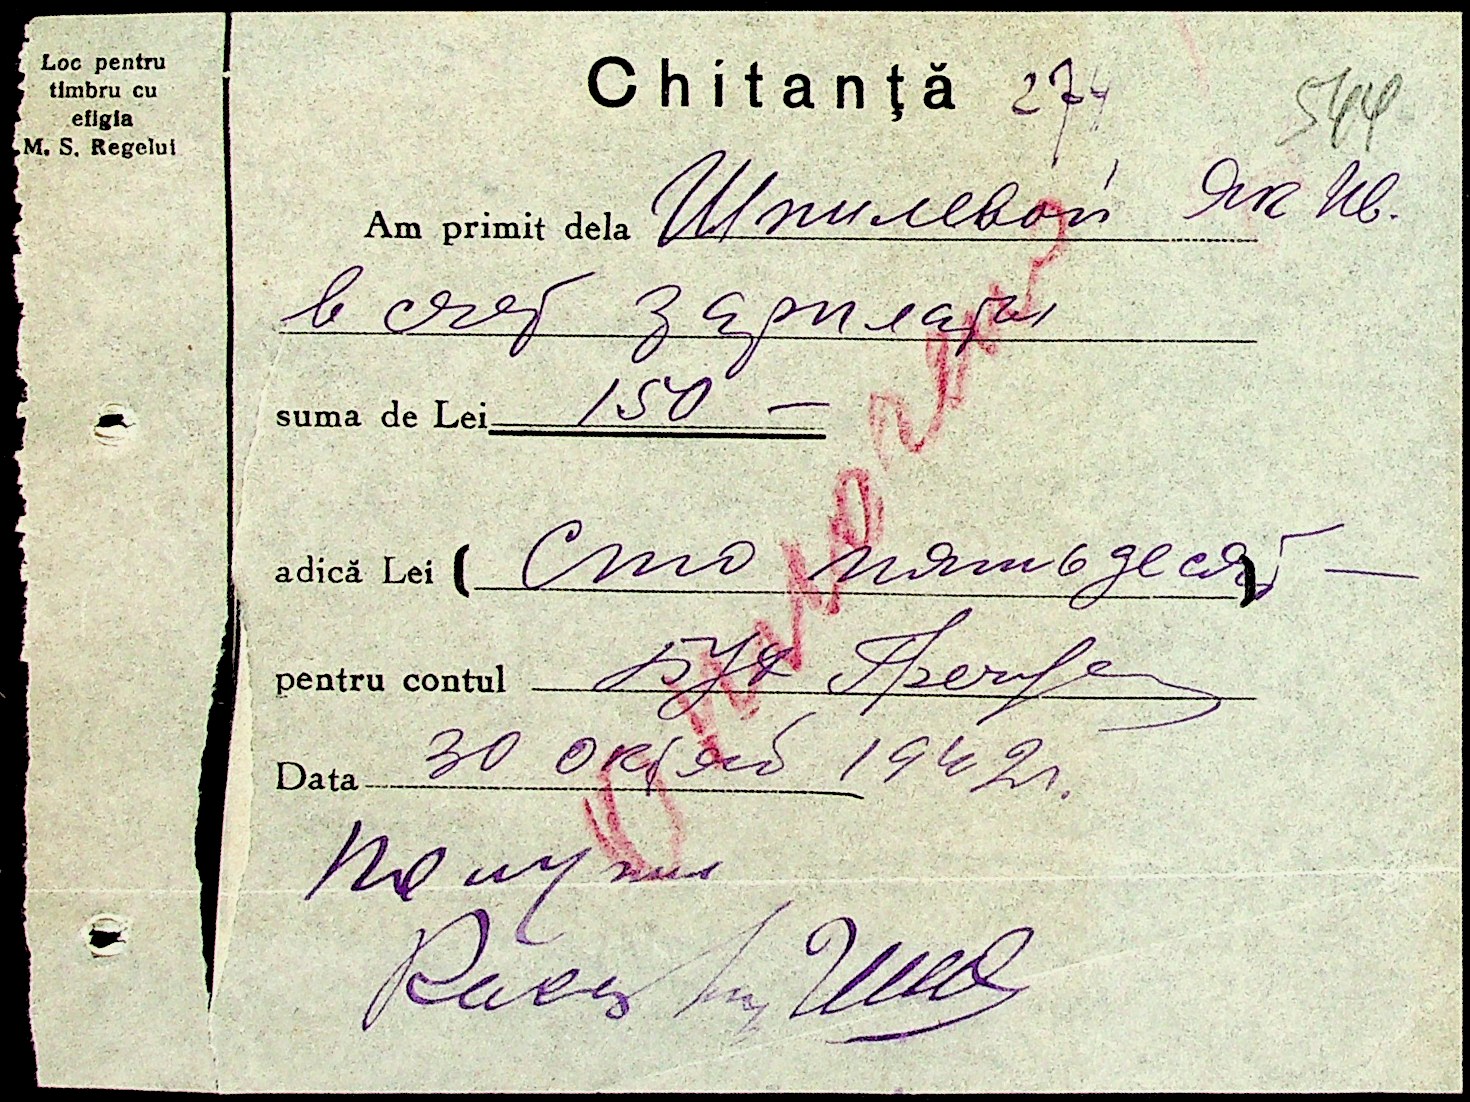 Loc pentru
timbru cu
efigia
M. S. Regelui
Chitanță 274
544
Am primit dela Шпилевой Як Ив.
в счёт зарплаты
suma de Lei 150 —
adică Lei ( Сто пятьдесят ) —
pentru contul
Data 30 октяб 1942г.
Получил